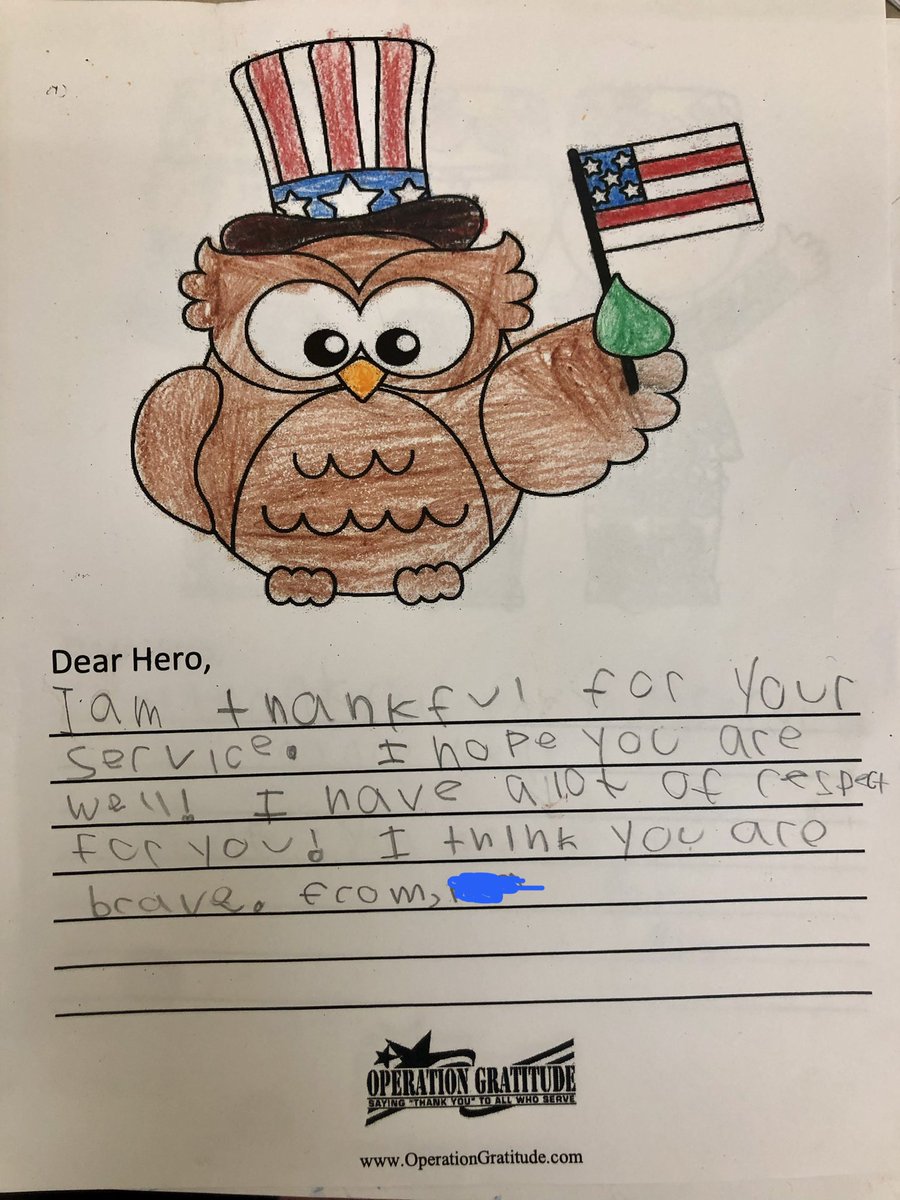 Dear Hero,
I am thankful for your
service. I hope you are
well! I have alot of respect
for you! I think you are
brave. from,
OPERATION GRATITUDE
SAYING "THANK YOU" TO ALL WHO SERVE
www.OperationGratitude.com